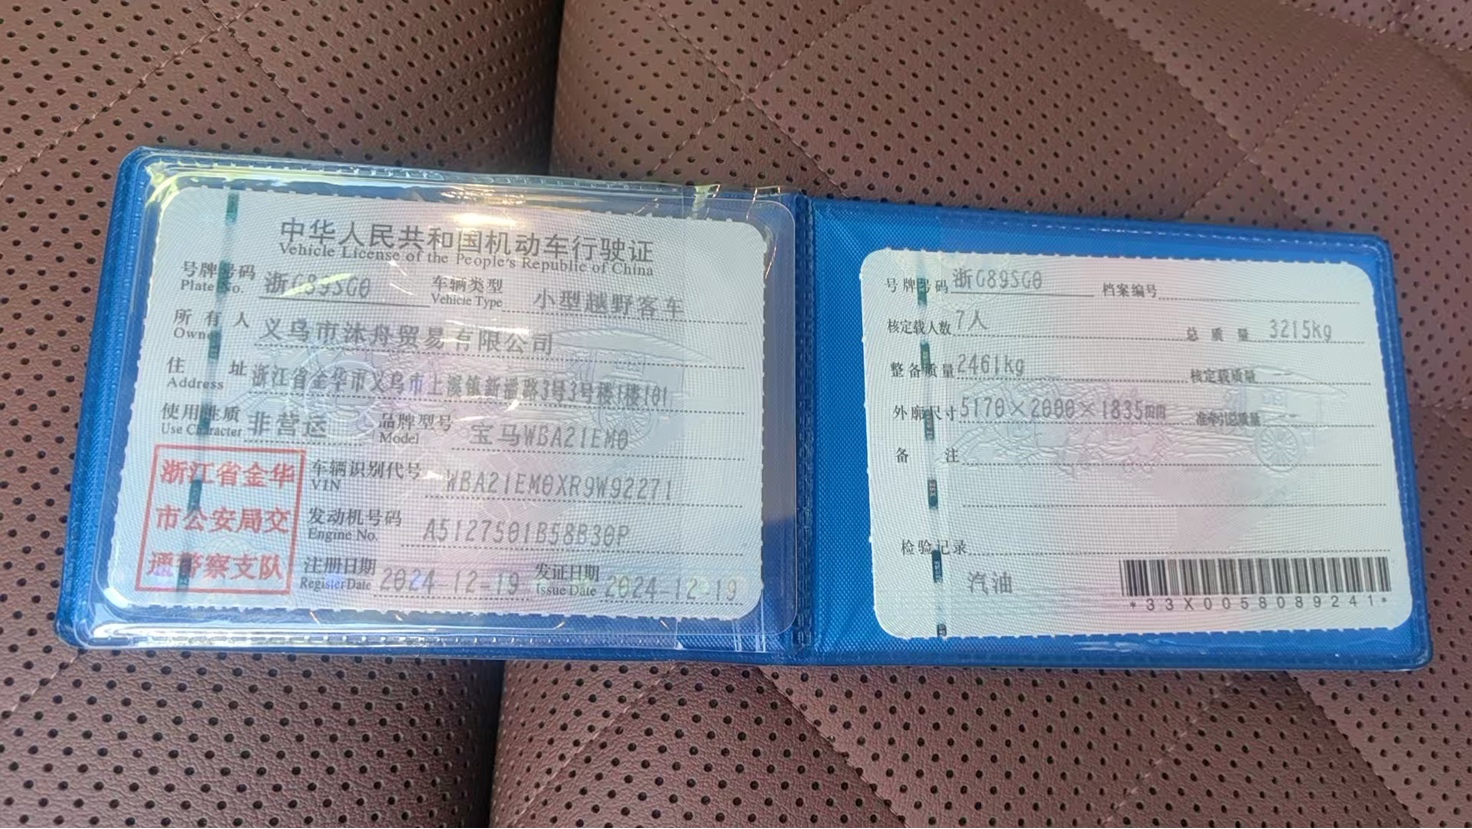 中华人民共和国机动车行驶证
Vehicle License of the People's Republic of China
号牌号码 浙G89SG0 车辆类型 小型越野客车
Plate No. Vehicle Type
所有人 义乌市沐舟贸易有限公司
Owner
住址 浙江省金华市义乌市上溪镇新潘路3号3号楼1楼101
Address
使用性质 非营运 品牌型号 宝马WBA21EM0
Use Character Model
浙江省金华
市公安局交
通警察支队
车辆识别代号 WBA21EM0XR9W92271
VIN
发动机号码 A5127501B58B30P
Engine No.
注册日期 2024-12-19 发证日期 2024-12-19
Register Date Issue Date
号牌号码 浙G89SG0 档案编号
核定载人数 7人 总质量 3215kg
整备质量 2461kg 核定载质量
外廓尺寸 5170×2000×1835mm 准牵引总质量
备注
检验记录
汽油
*33X0058089241*